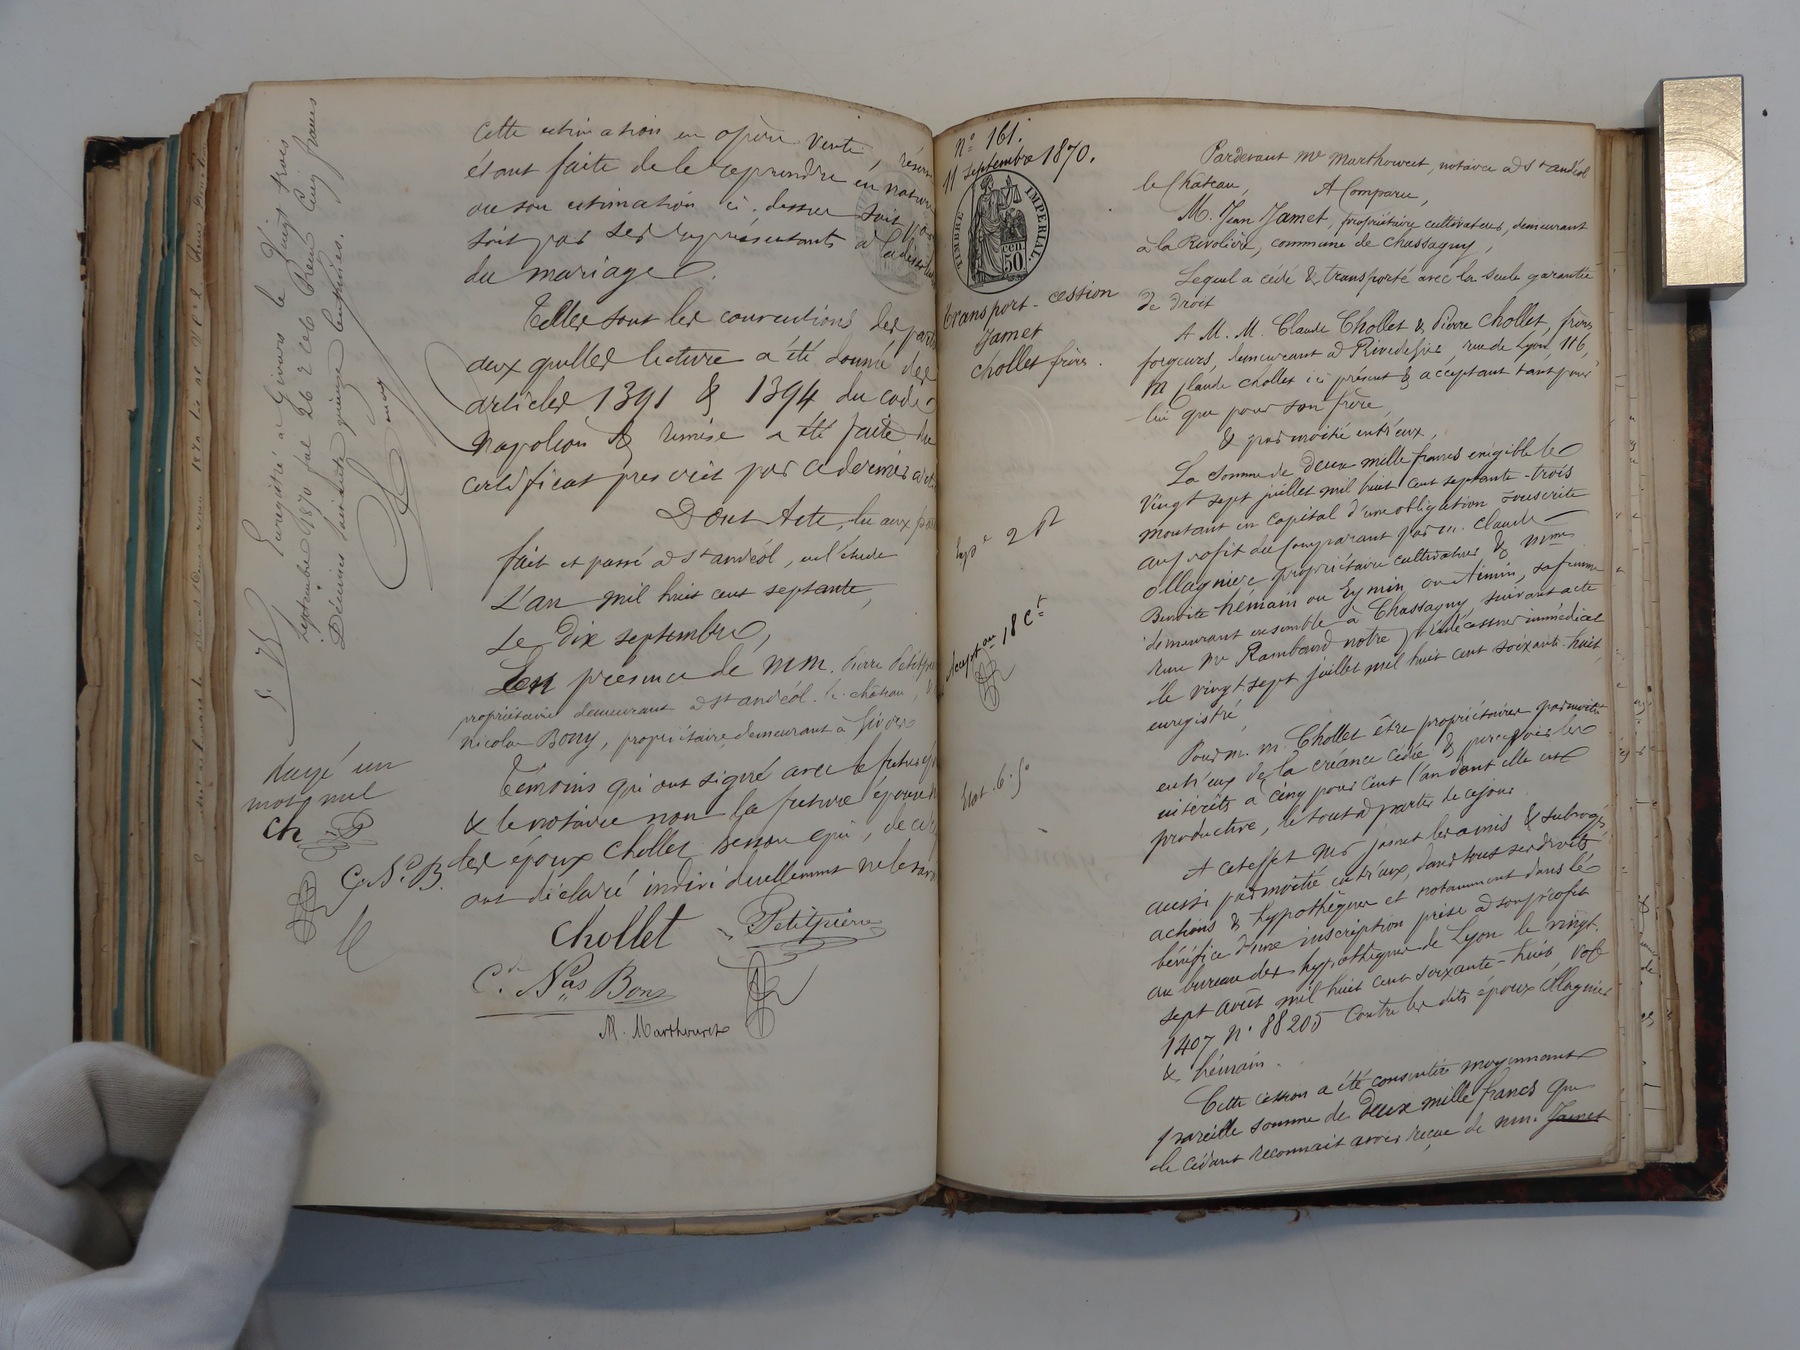 Cette estimation en opère vente, réserve
étant faite de le reprendre en nature
ou son estimation ci-dessus soit par
soit par ses représentants à la dissolution
du mariage.
Telles sont les conventions des parties
auxquelles lecture a été donné des
articles 1391 & 1394 du code
Napoléon & remise a été faite du
certificat prescrit par ce dernier article
Dont Acte, lu aux parties
fait et passé à St andéol, en l'étude
L'an mil huit cent septante,
Le Dix septembre,
En présence de MM. Pierre Petitpierre
propriétaire demeurant à St andéol-le-château,
Nicolas Bony, propriétaire, demeurant à Givors
Témoins qui ont signé avec le futur époux
& le notaire non la future épouse ni
les époux Chollet
ont déclaré individuellement ne le savoir
Chollet Petitpierre
C. Nas Bony
M. Marthouret
Enregistré à Givors le Vingt trois
septembre 1870 fol 26 2 c 6 Reçu Cinq francs
Décimes soixante quinze centimes.
Rayé un
mot nul
Ch
C. N. B.
N° 161.
11 septembre 1870.
TIMBRE IMPERIAL.
50 cen
transport-cession
Jamet
Chollet frères.
Exp.
Etat
Pardevant Me Marthouret, notaire à St andéol
le Château,
A Comparu,
M. Jean Jamet, propriétaire cultivateur, demeurant
à la Rivolière, commune de Chassagny,
Lequel a cédé & transporté avec la seule garantie
de droit
A M. M. Claude Chollet & Pierre Chollet, frères
forgeurs, demeurant à Rivedegier, rue de Lyon, 116,
M Claude Chollet ici présent & acceptant tant pour
lui que pour son frère,
& par moitié entr'eux,
La somme de deux mille francs exigible le
Vingt sept juillet mil huit cent septante-trois
montant en capital d'une obligation souscrite
au profit du Comparant par M. Claude
Ollagnier propriétaire cultivateur & Mme
Benoîte hémain ou Eymin ou Aimin, sa femme
demeurant ensemble à Chassagny, suivant acte
reçu Me Rambaud notre prédécesseur immédiat
le vingt sept juillet mil huit cent soixante-huit,
enregistré,
Pour M. M. Chollet être propriétaires par moitié
entr'eux de la créance cédée & percevoir les
intérêts à cinq pour cent l'an dont elle est
productive, le tout à partir de ce jour
A cet effet Mr Jamet les a mis & subrogé,
aussi par moitié entr'eux, dans tous ses droits
actions & hypothèques et notamment dans le
bénéfice d'une inscription prise à son profit
au bureau des hypothèques de Lyon le vingt
sept août mil huit cent soixante-huit, vol
1407 N° 88205 contre les dits époux Ollagnier
& hémain.
Cette cession a été consentie moyennant
pareille somme de Deux mille francs que
le cédant reconnait avoir reçue de MM. Jamet